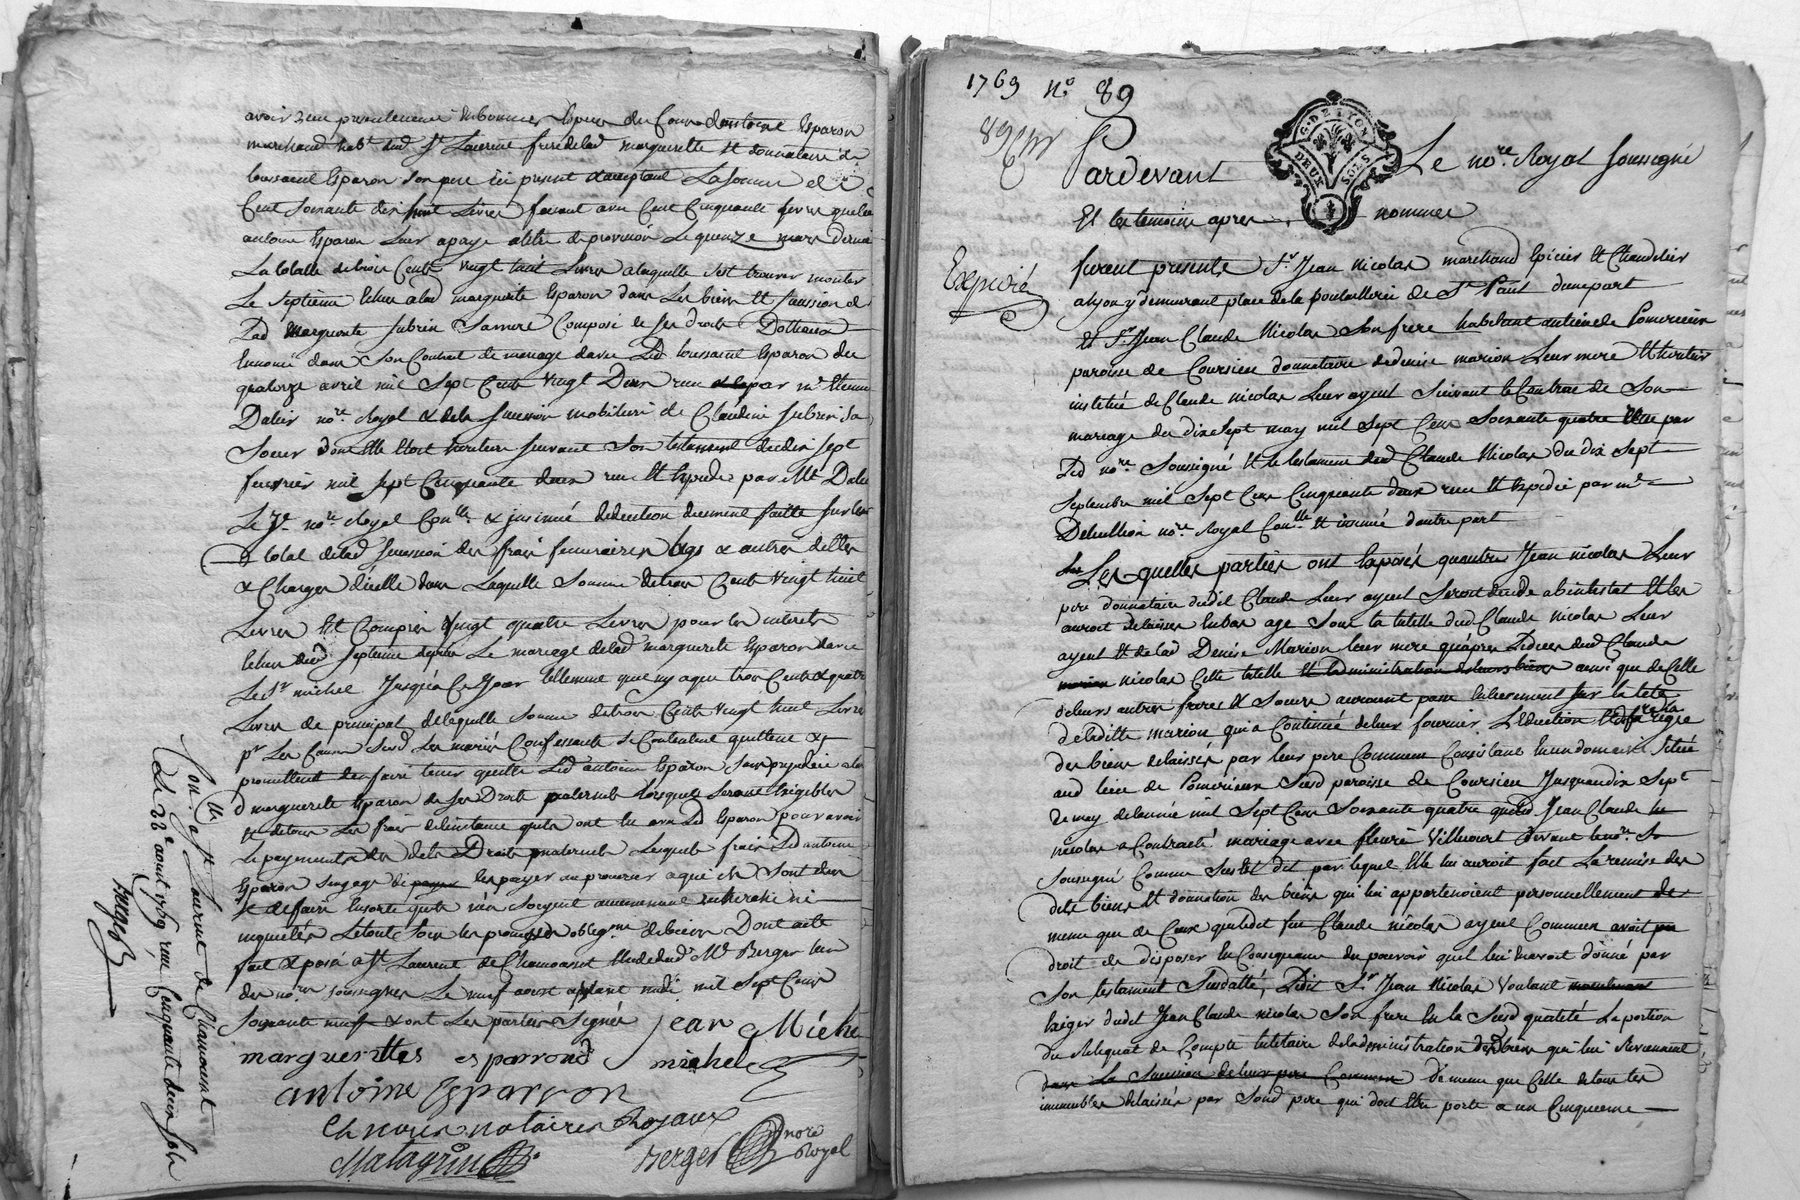 avoir reçu presentement en bonnes Especes du Cours d'antoine Esparon
marchand hab.t dud St Laurent frere de lad marguerite et donnataire de
toussaint Esparon son pere ici present & acceptant La somme de
Cent soixante dix huit Livres faisant avec Cent Cinquante livres que led
antoine Esparon leur a payé a titre de provision Le quinze mars dernier
La totalle de trois Cents vingt huit Livres a laquelle s'est trouvée monter
Le septieme Echu a lad marguerite Esparon dans Les biens et succession de
Lad marguerite subrin sa mere Composé de ses droits Dottaux
Enoncé dans son Contrat de mariage d'avec Led toussaint Esparon du
quatorze avril mil sept Cents vingt Deux reçu par me Etienne
Dalier nore Royal & de la succession mobiliere de Claudine subrin sa
soeur dont Elle Etoit heritiere suivant son testament du dix sept
fevrier mil sept Cinquante deux reçu Et Expedié par Me Dalier
Le Je nore Royal Conlle & insinué deduction duement faitte sur le
total de lad succession des frais funeraires legs & autres dettes
& Charges d'icelle dans Laquelle somme de trois Cents vingt huit
Livres Est Compris vingt quatre Livres pour les interets
Echus dud septieme depuis Le mariage de lad marguerite Esparon d'avec
Le Sr michel jusqu'a Ce jour tellement que n'y a que trois Cents & quatre
Livres de principal de laquelle somme de trois Cents vingt huit Livres
pr Les Causes susd Les mariés Confessants se Contentent quittent &
promettent de faire tenir quitte Led antoine Esparon sans prejudice a la
d marguerite Esparon de ses Droits paternels lorsquils seront Exigibles
et de tous Les frais de l'instance qu'ils ont Eu avec Led Esparon pour avoir
Le payement des dits Droits maternels Lesquels frais Led antoine
Esparon s'engage de payer au procureur a qui ils sont dus
Et de faire Ensorte qu'ils n'en soyent aucunement recherchés ni
inquietés Le tout sous les promesses obligons de biens Dont acte
fait & passé a St Laurent de Chamousset Etude dud Me Berger l'un
des nores soussignés Le neuf aoust apres midi mil sept Cents
soixante neuf & ont Les parties signé
jean Michel
margueritte esparrond michel
antoine Esparron
Et nous notaires Royaux
Matagrin
Berger nore Royal
Con.lle a St Laurent de Chamousset
Le 22e aoust 1769 reçu Cinquante deux sols
Berger
1763 no. 89
89
Pardevant
G. DE LYON
DEUX SOLS
Le nore Royal soussigné
Et les temoins apres nommés
Expedié
furent presents Sr Jean Nicolas marchand Epicier Et Chandelier
a Lyon y demeurant place de la boucherie de St Paul d'une part
Et Sr Jean Claude Nicolas son frere habitant au lieu de Pomerieux
paroisse de Coursieu donnataire de denise marion Leur mere Et heritier
institué de Claude nicolas Leur ayeul suivant le Contrat de son
mariage du dix sept may mil sept Cens soixante quatre Reçu par
Led nore soussigné Et le testament dud Claude Nicolas du dix sept
septembre mil sept Cens Cinquante deux reçu Et Expedié par me
Delullion nore Royal Conlle Et insinué d'autre part
Les quelles parties ont Exposé que autre Jean nicolas Leur
pere donnataire dudit Claude Leur ayeul seroit decedé abintestat Et les
auroit delaissés en bas age sous la tutelle dud Claude nicolas Leur
ayeul Et de lad Denise Marion leur mere qu'apres Le deces dud Claude
nicolas Cette tutelle Et L'administration de leurs biens ainsi que de Celle
de leurs autres freres Et soeurs auroient passé Entierement sur la tete
de laditte marion qui a Continué de leur fournir L'Education Et de faire La regie
des biens delaissés par leur pere Commun Consistant En un domaine situé
aud lieu de Pomerieux susd paroisse de Coursieu Jusqu'au dix sept
de may de l'année mil sept Cens soixante quatre que led Jean Claude
nicolas a Contracté mariage avec fleurie Villecourt devant le nore
soussigné Comme susdit dit par lequel Elle lui auroit fait La remise des
dits biens Et donnation des biens qui lui appartenoient personnellement de
meme que de Ceux que ledit feu Claude nicolas ayeul Commun avoit pu
droit de disposer En Consequence du pouvoir qu'il lui En avoit donné par
son testament susdatté, Ledit Sr Jean Nicolas voulant
Exiger dudit Jean Claude nicolas son frere En la susd qualité La portion
du Reliquat de Compte tutelaire de l'administration des biens qui lui Reviennent
dans La succession de leur pere Commun De meme que Celle de tous les
immeubles delaissés par Sond pere qui doit Etre porté a un Cinquieme